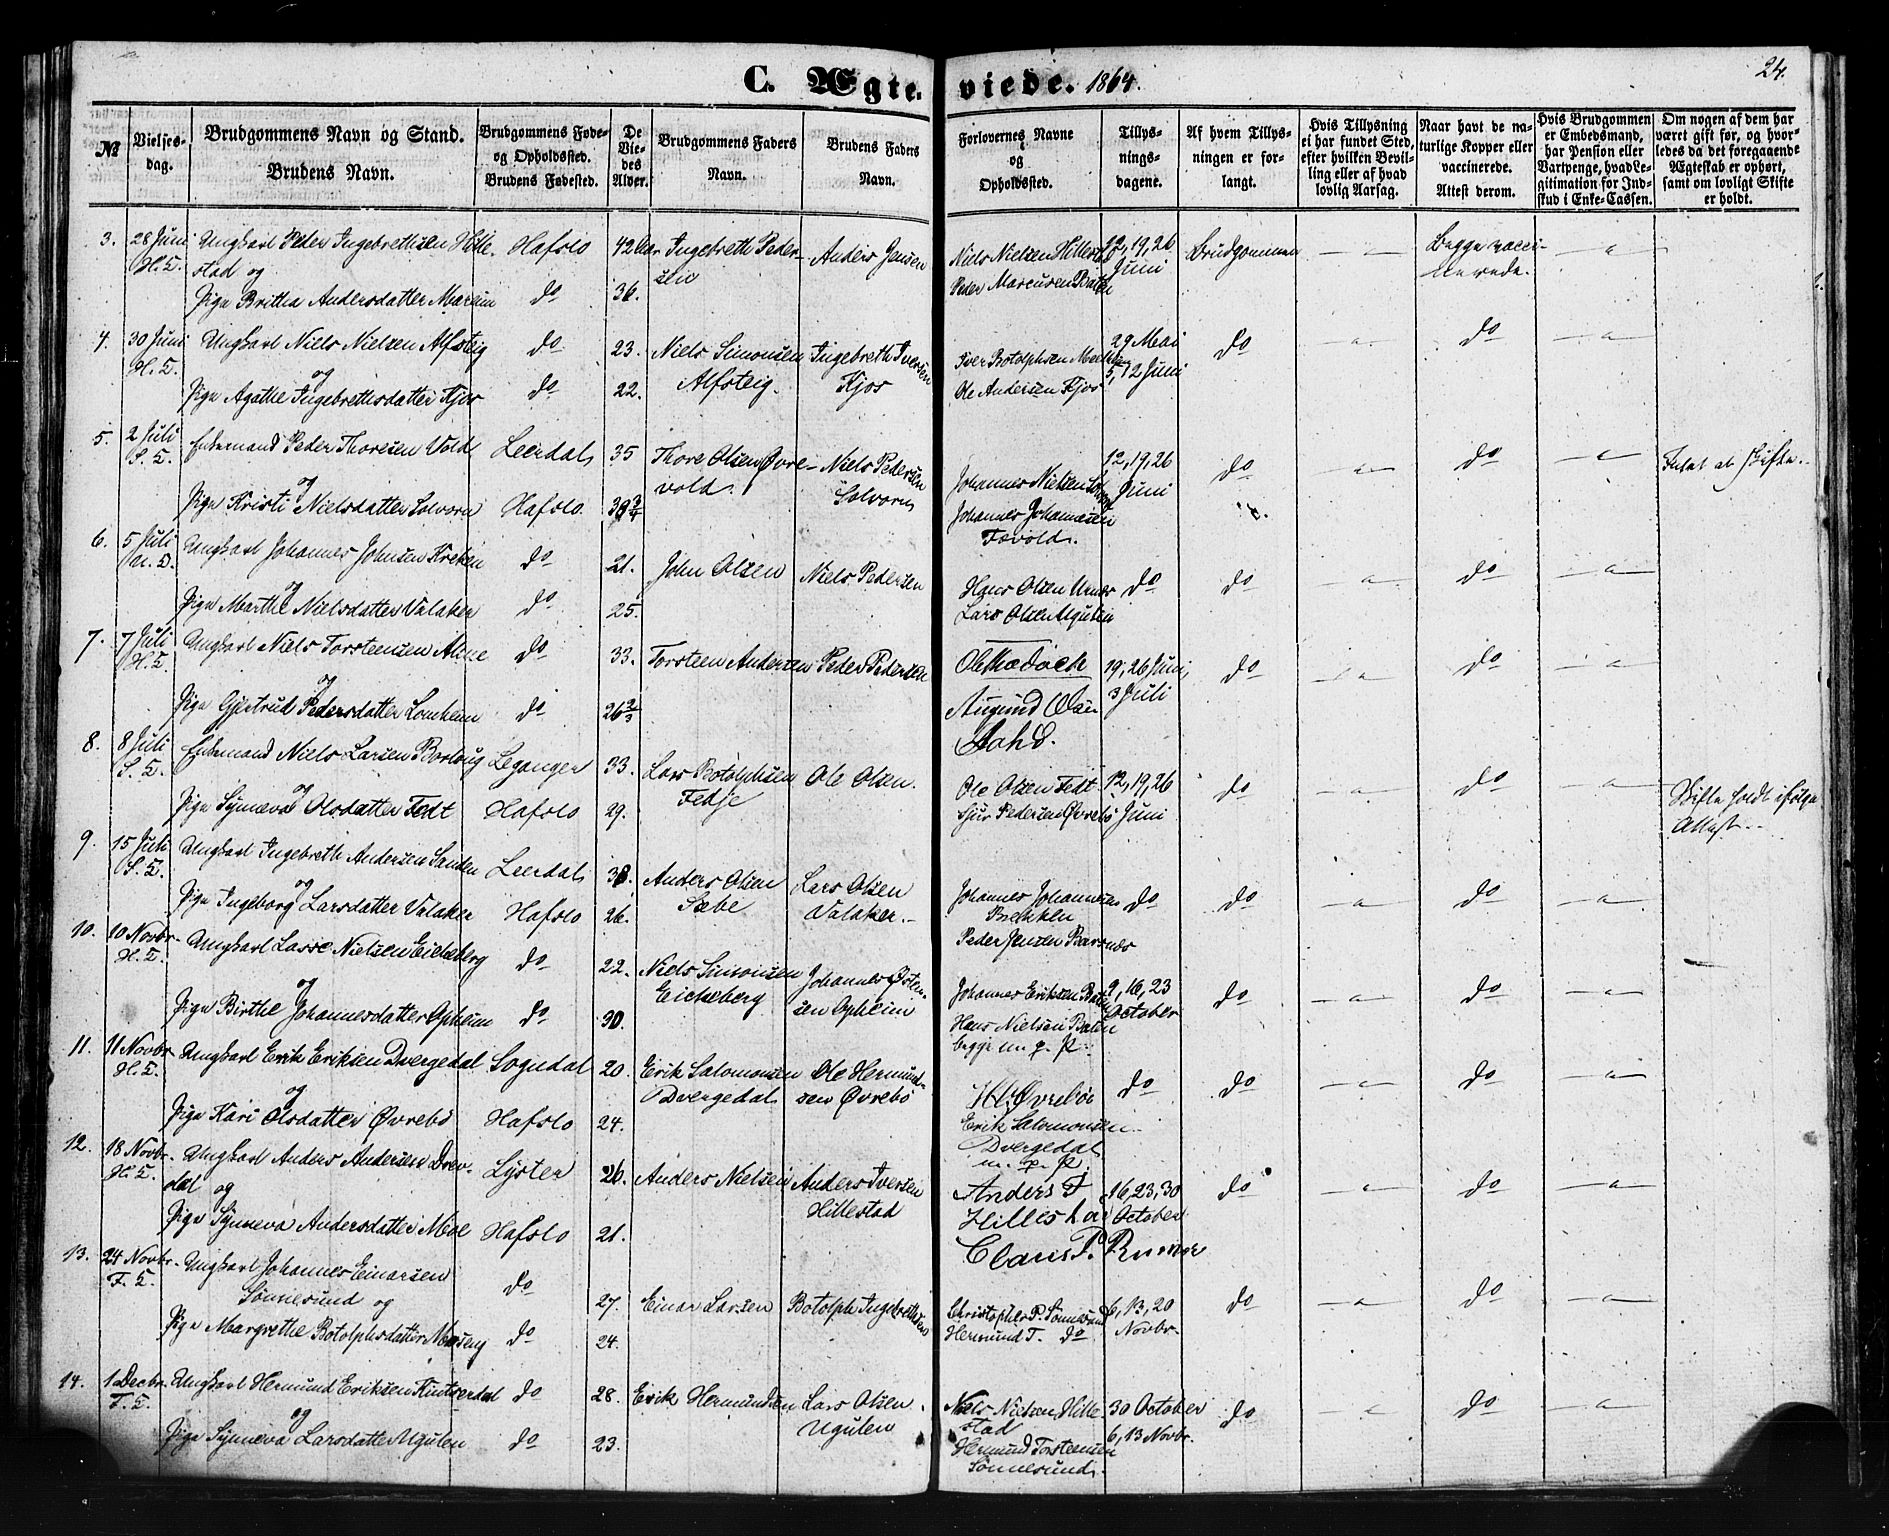 C. Ægteviede. 1864.
24.
№
Vielsesdag.
Brudgommens Navn og Stand.
Brudens Navn.
Brudgommens Føde-
og Opholdssted.
Brudens Fødested.
De
Vie-
des
Alder.
Brudgommens Faders
Navn.
Brudens Faders
Navn.
Forlovernes Navne
og
Opholdssted.
Tillys-
nings-
dagene.
Af hvem Tillys-
ningen er for-
langt.
Hvis Tillysning
ei har fundet Sted,
efter hvilken Bevil-
ling eller af hvad
lovlig Aarsag.
Naar havt de na-
turlige Kopper eller
vaccinerede.
Attest derom.
Hvis Brudgommen
er Embedsmand,
har Pension eller
Vartpenge, hvad Le-
gitimation for Ind-
skud i Enke-Cassen.
Om nogen af dem har
været gift før, og hvor-
ledes da det foregaaende
Ægteskab er ophørt,
samt om lovligt Skifte
er holdt.
3. 28 Juni Ungkarl Peder Ingebrethsen Hille- Hafslo 42 Aar Ingebreth Peder- Anders Jensen Niels Nielsen Hillestad 12, 19, 26 Brudgommen Begge vacci-
H. S. stad og sen Juni nerede.
Pige Britha Andersdatter Marum do 36. Peder Marcusen
4. 30 Juni Ungkarl Niels Nielsen Alfsteig do 23. Niels Simonsen Ingebreth Iversen Iver Botolphsen 29 Mai do do
H. S. og Alfsteig. Kjos 5, 12 Juni
Pige Agathe Ingebrethsdatter Kjos do 22. Ole Andersen Kjos
5. 2 Juli Enkemand Peder Thoresen Vold Leerdal 35 Thore Olsen Øvre- Niels Pedersen Johannes Nielsen 12, 19, 26 do do
S. S. og vold. Solvorn Juni
Pige Kristi Nielsdatter Solvorn Hafslo Johannes Johannesen
6. 5 Juli Ungkarl Johannes Johnsen Kreken do 21. John Olsen Niels Pedersen Hans Olsen Urnes do do do
og
Pige Marthe Nielsdatter Valaker do 25. Lars Olsen Ugulen
7. 7 Juli Ungkarl Niels Torsteensen Alme do 33. Torsteen Andersen Peder Pedersen 19, 26 Juni, do do
H. S. og 3 Juli
Pige Gjertrud Pedersdatter Lomheim do 26⅔
8. 8 Juli Enkemand Niels Larsen Borlaug Leganger 33. Lars Botolphsen Ole Olsen. Ole Olsen Fedt 12, 19, 26 do do Skifte holdt ifølge
S. S. og Fedje Juni Attest.
Pige Synneva Olsdatter Fedt Hafslo 29. Sjur Pedersen Øvrebø
9. 15 Juli Ungkarl Ingebreth Andersen Sanden Leerdal 38. Anders Olsen Lars Olsen Johannes Johannesen do do do
S. S. og Sæbe Valaker.
Pige Ingeborg Larsdatter Valaker Hafslo 26. Peder Jensen Barsnæs
10. 10 Novbr. Ungkarl Lasse Nielsen Eicheberg do 22. Niels Simonsen Johannes Østen- Johannes Eriksen 9, 16, 23 do do
H. S. og Eicheberg sen Opheim October
Pige Birthe Johannesdatter Opheim do 30. Hans Nielsen
begge m. p. P.
11. 11 Novbr. Ungkarl Erik Eriksen Dvergedal Sogndal 20. Erik Salomonsen Ole Hermund- Øvrebøe do do do
H. S. og Dvergedal sen Øvrebø Erik Salomonsen
Pige Kari Olsdatter Øvrebø Hafslo 24. Dvergedal
m. p. P.
12. 18 Novbr. Ungkarl Anders Andersen Drev- Lyster 26. Anders Nielsen Anders Iversen Anders I 16, 23, 30 do do
H. S. dal og Hillestad Hillestad October
Pige Synneva Andersdatter Moe Hafslo 21. Claus P.
13. 24 Novbr. Ungkarl Johannes Einarsen do 27. Einar Larsen Botolph Ingebrethsen Christopher P. Sønnesund 6, 13, 20 do do
F. S. Sønnesund og Novbr.
Pige Margrethe Botolphsdatter Moseng do 24. Hermund T. do
14. 1 Decbr. Ungkarl Hermund Eriksen do 28. Erik Hermundsen Lars Olsen Niels Nielsen Hille- 30 October do do
F. S. og Ugulen stad 6, 13 Novbr.
Pige Synneva Larsdatter Ugulen do 23. Hermund Torsteensen
Sønnesund.